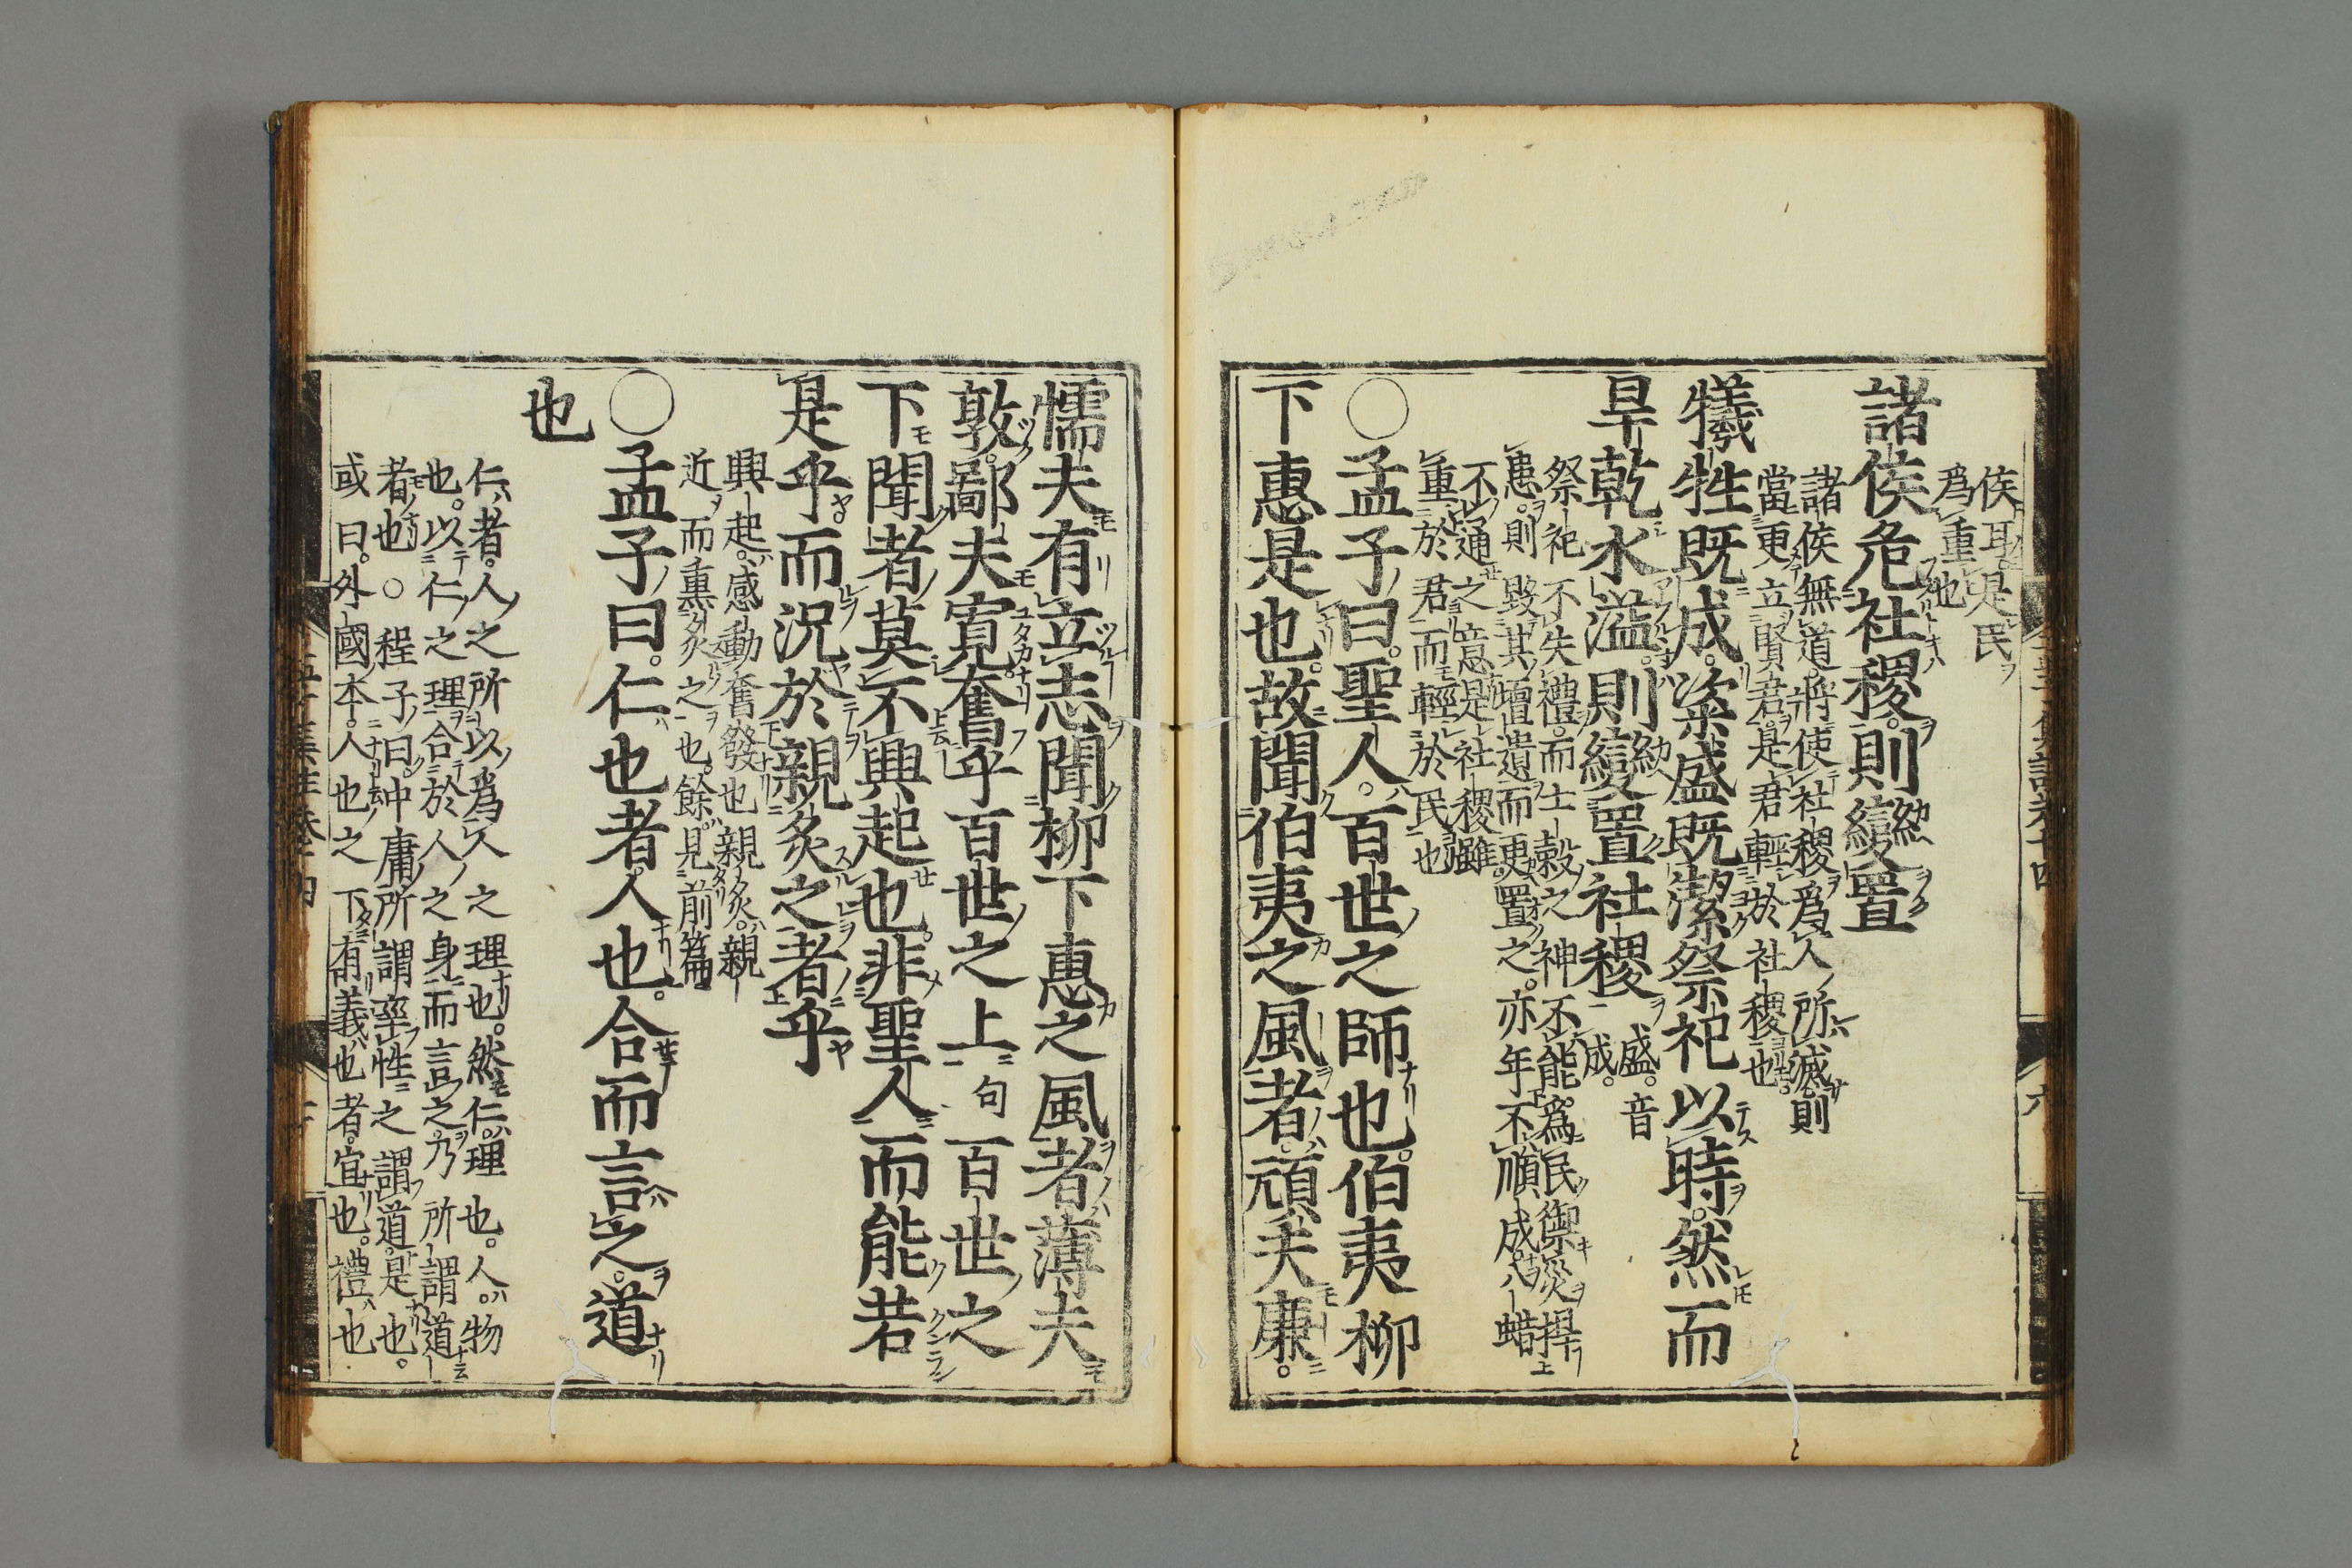 侯耳是民
爲重也
諸侯危社稷則變置
諸侯無道將使社稷爲人所滅則
當更立賢君是君輕於社稷也
犧牲既成粢盛既潔祭祀以時然而
旱乾水溢則變置社稷
盛音
成
祭祀不失禮而土穀之神不能爲民禦災捍
患則毀其壇壝而更置之亦年不順成八蜡
不通之意是社稷雖
重於君而輕於民也
○孟子曰聖人百世之師也伯夷柳
下惠是也故聞伯夷之風者頑夫廉
懦夫有立志聞柳下惠之風者薄夫
敦鄙夫寬奮乎百世之上句百世之
下聞者莫不興起也非聖人而能若
是乎而況於親炙之者乎
興起感動奮發也親炙親
近而熏炙之也餘見前篇
○孟子曰仁也者人也合而言之道
也
仁者人之所以爲人之理也然仁理也人物
也以仁之理合於人之身而言之乃所謂道
者也○程子曰中庸所謂率性之謂道是也
或曰外國本人也之下有義也者宜也禮也